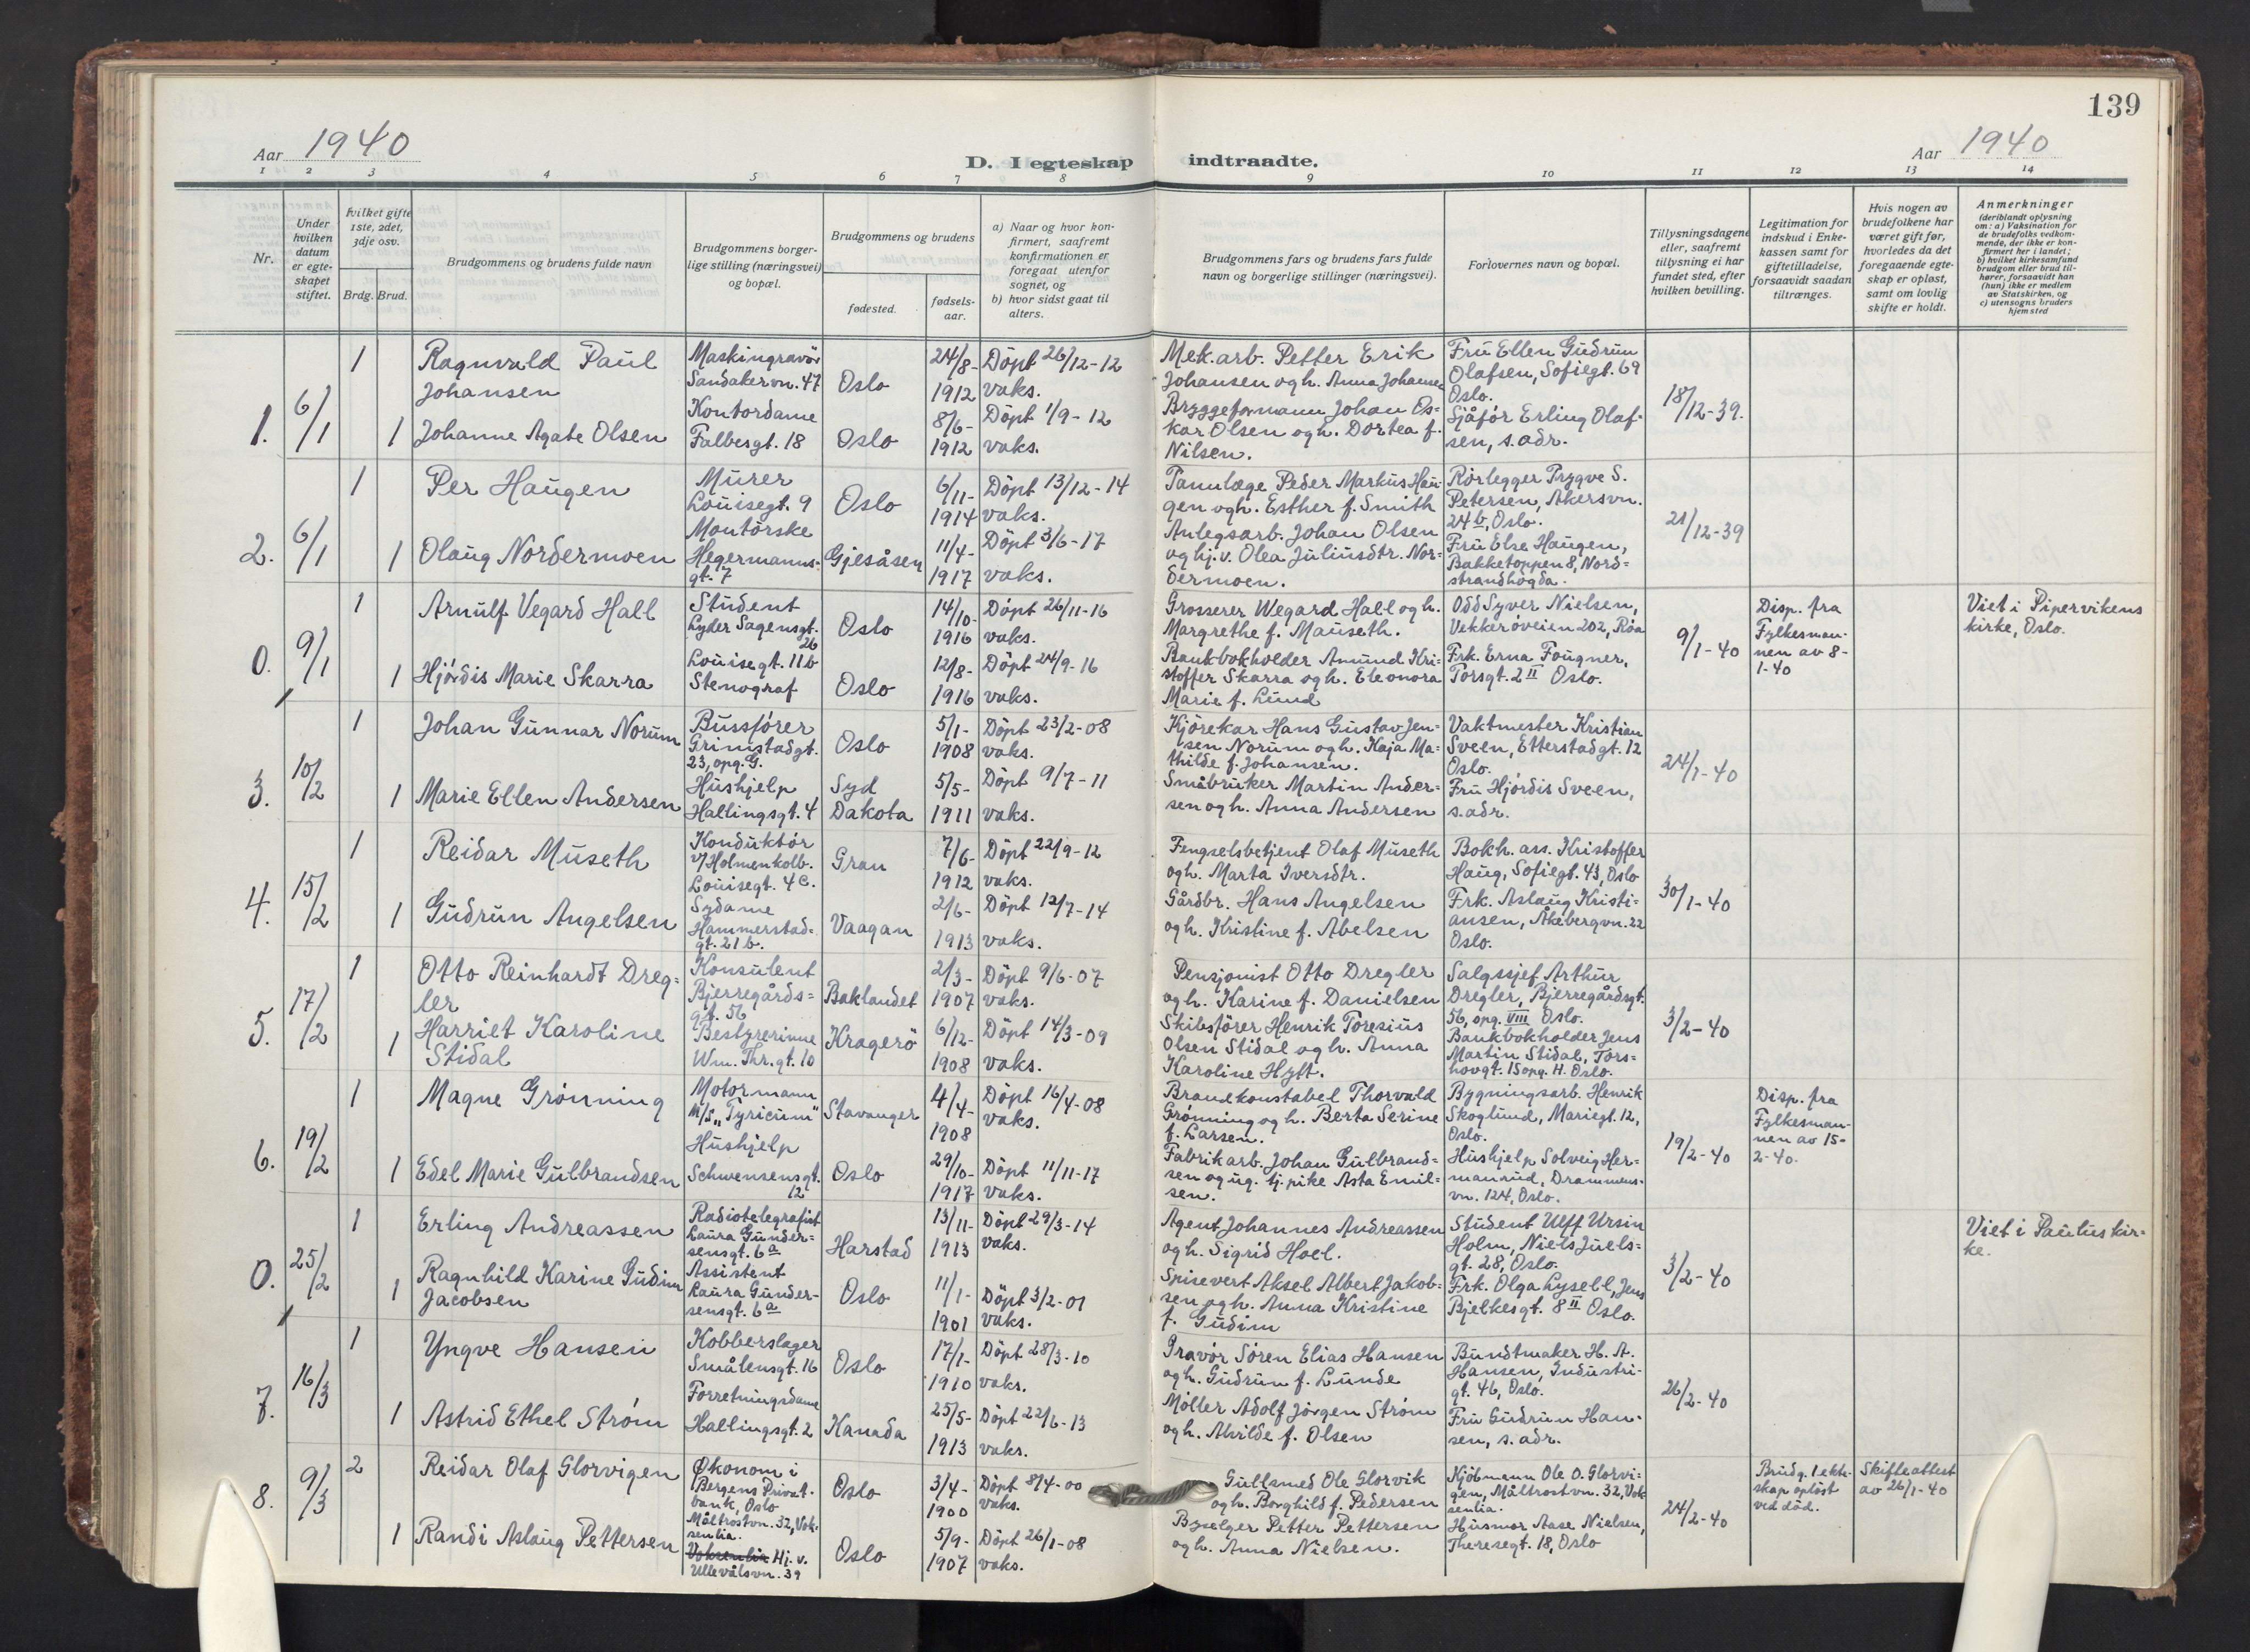 139
Aar 1940
D. I egteskap indtraadte.
Aar 1940
1 2 3 4 5 6 7 8 9 10 11 12 13 14
Nr.
Under hvilken datum er egteskapet stiftet.
hvilket gifte 1ste, 2det, 3dje osv.
Brdg. Brud.
Brudgommens og brudens fulde navn
Brudgommens borgerlige stilling (næringsvei) og bopæl.
Brudgommens og brudens
fødested.
fødselsaar.
a) Naar og hvor konfirmert, saafremt konfirmationen er foregaat utenfor sognet, og
b) hvor sidst gaat til alters.
Brudgommens fars og brudens fars fulde navn og borgerlige stillinger (næringsvei).
Forlovernes navn og bopæl.
Tillysningsdagene eller, saafremt tillysning ei har fundet sted, efter hvilken bevilling.
Legitimation for indskud i Enkekassen samt for giftetilladelse, forsaavidt saadan tiltrænges.
Hvis nogen av brudefolkene har været gift før, hvorledes da det foregaaende egteskap er opløst, samt om lovlig skifte er holdt.
Anmerkninger
(deriblandt oplysning om: a) Vaksination for de brudefolks vedkommende, der ikke er konfirmert her i landet; b) hvilket kirkesamfund brudgom eller brud tilhører, forsaavidt han (hun) ikke er medlem av Statskirken, og c) utensogns bruders hjemsted
1. 6/1
1 Ragnvald Paul Johansen
Maskingravör Sandakervn. 47
Oslo
24/8-1912
Döpt 26/12-12 vaks.
Mek. arb. Petter Erik Johansen og h. Anna Johansen
Fru Ellen Gudrun Olafsen, Sofiegt. 69 Oslo.
18/12-39.
1 Johanne Agate Olsen
Kontordame Falbesgt. 18
Oslo
8/6-1912
Döpt 1/9-12 vaks.
Bryggeformann Johan Oskar Olsen og h. Dortea f. Nilsen.
Sjåför Erling Olafsen, s. adr.
2. 6/1
1 Per Haugen
Murer Louisegt. 9
Oslo
6/11-1914
Döpt 13/12-14 vaks.
Tannlæge Peder Markus Haugen og h. Esther f. Smith
Rörlegger Trygve S. Petersen, Akersvn. 24 b, Oslo.
21/12-39
1 Olaug Nordermoen
Montörske Hegermannsgt. 7
Gjesåsen
11/4-1917
Döpt 3/6-17 vaks.
Anlegsarb. Johan Olsen og hj. v. Olea Juliusdtr. Nordermoen.
Fru Else Haugen, Bakketoppen 8, Nordstrandhögda.
0. 9/1
1 Arnulf Vegard Hall
Student Lyder Sagensgt. 26
Oslo
14/10-1916
Döpt 26/11-16 vaks.
Grosserer Wegard Hall og h. Margrethe f. Mauseth.
Odd Syver Nielsen, Vekkeröveien 202, Röa
9/1-40
Disp. fra Fylkesmannen av 8-1-40
Viet i Pipervikens kirke, Oslo.
1 Hjördis Marie Skarra
Louisegt. 11 b Stenograf
Oslo
12/8-1916
Döpt 24/9-16 vaks.
Bankbokholder Amund Kristoffer Skarra og h. Eleonora Marie f. Lund
Frk. Erna Fougner, Torsgt. 2 II Oslo.
3. 10/2
1 Johan Gunnar Norum
Bussförer Grimstadgt. 23, opg. G.
Oslo
5/1-1908
Döpt 23/2-08 vaks.
Kjörekar Hans Gustav Jensen Norum og h. Kaja Mathilde f. Johansen.
Vaktmester Kristian Sveen, Etterstadgt. 12 Oslo.
24/1-40
1 Marie Ellen Andersen
Hushjelp Hallingsgt. 4
Syd Dakota
5/5-1911
Döpt 9/7-11 vaks.
Småbruker Martin Andersen og h. Anna Andersen
Fru Hjördis Sveen, s. adr.
4. 15/2
1 Reidar Museth
Konduktör v/Holmenkolb. Louisegt. 4 c.
Gran
7/6-1912
Döpt 22/9-12 vaks.
Fengselsbetjent Olaf Museth og h. Marta Iversdtr.
Bokh. ass. Kristoffer Haug, Sofiegt. 43, Oslo
30/1-40
1 Gudrun Angelsen
Sydame Hammerstadgt. 21 b.
Vaagan
2/6-1913
Döpt 12/7-14 vaks.
Gårdbr. Hans Angelsen og h. Kristine f. Abelsen
Frk. Aslaug Kristiansen, Åkebergvn. 22 Oslo.
5. 17/2
1 Otto Reinhardt Dregler
Konsulent Bjerregårdsgt. 56
Baklandet
2/3-1907
Döpt 9/6-07 vaks.
Pensjonist Otto Dregler og h. Karine f. Danielsen
Salgssjef Arthur Dregler, Bjerregårdsgt. 56, opg. VIII Oslo.
3/2-40
1 Harriet Karoline Stidal
Bestyrerinne Wm. Thr. gt. 10
Kragerö
6/12-1908
Döpt 14/3-09 vaks.
Skibsförer Henrik Toresius Olsen Stidal og h. Anna Karoline Hyft.
Bankbokholder Jens Martin Stidal, Torshovgt. 15 opg. H. Oslo.
6. 19/2
1 Magne Grönning
Motormann M/S "Tyricum"
Stavanger
4/4-1908
Döpt 16/4-08 vaks.
Brandkonstabel Thorvald Grönning og h. Berta Serine f. Larsen.
Bygningsarb. Henrik Skoglund, Mariegt. 12, Oslo.
19/2-40
Disp. fra Fylkesmannen av 15-2-40.
1 Edel Marie Gulbrandsen
Hushjelp Schwensensgt. 12
Oslo
29/10-1917
Döpt 11/11-17 vaks.
Fabrikarb. Johan Gulbrandsen og ug. tj. pike Asta Emilsen.
Hushjelp Solveig Hermanrud, Drammensvn. 124, Oslo.
0. 25/2
1 Erling Andreassen
Radiotelegrafist Laura Gundersensgt. 6 a
Harstad
13/11-1913
Döpt 29/3-14 vaks.
Agent Johannes Andreassen og h. Sigrid Hoel.
Student Ulff Ursin Holm, Niels Juelsgt. 28, Oslo.
3/2-40
Viet i Paulus kirke.
1 Ragnhild Karine Gudim Jacobsen
Assistent Laura Gundersensgt. 6 a
Oslo
11/1-1901
Döpt 3/2-01 vaks.
Spisevert Aksel Albert Jakobsen og h. Anna Kristine f. Gudim
Frk. Olga Lysell, Jens Bjelkesgt. 8 II Oslo.
7. 16/3
1 Yngve Hansen
Kobberslager Smålensgt. 16
Oslo
17/1-1910
Döpt 28/3-10 vaks.
Gravör Sören Elias Hansen og h. Gudrun f. Lunde
Bundtmaker H. A. Hansen, Industrigt. 46, Oslo.
26/2-40
1 Astrid Ethel Ström
Forretningsdame Hallingsgt. 2
Kanada
25/5-1913
Döpt 22/6-13 vaks.
Möller Adolf Jörgen Ström og h. Alvilde f. Olsen
Fru Gudrun Hansen, s. adr.
8. 9/3
2 Reidar Olaf Glorvigen
Økonom i Bergens Privatbank, Oslo Måltrostvn. 32, Voksenlia.
Oslo
3/4-1900
Döpt 8/4-00 vaks.
Gullsmed Ole Glorvik og h. Borghild f. Pedersen
Kjöbmann Ole O. Glorvigen, Måltrostvn. 32, Voksenlia.
24/2-40
Brudg. 1 ekteskap oplöst ved död.
Skifteattest av 26/1-40
1 Randi Aslaug Pettersen
Voksenlia Hj. v. Ullevålsvn. 39
Oslo
5/9-1907
Döpt 26/1-08 vaks.
Byselger Petter Pettersen og h. Anna Nielsen.
Husmor Aase Nielsen, Theresegt. 18, Oslo